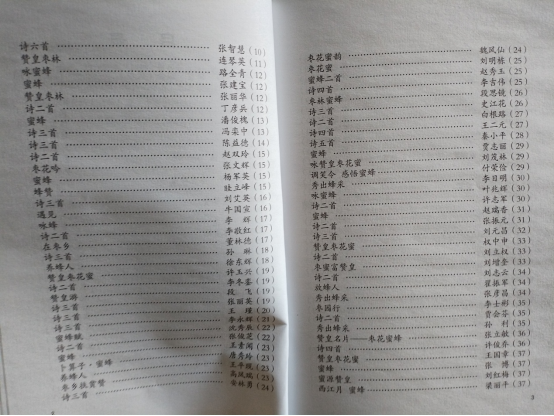 诗六首 张智慧(10)
赞皇枣林 连琴英(11)
咏蜜蜂 路全青(12)
蜜蜂 张建宝(12)
赞皇枣林 张丽华(12)
诗二首 丁彦兵(12)
蜜蜂 潘俊槐(13)
诗三首 冯栾中(13)
诗三首 陈益德(14)
诗二首 赵双玲(15)
枣花吟 张文辉(15)
蜜蜂 杨军英(15)
蜂赞 (15)
诗三首 刘艾英(16)
遇见 牛国宣(16)
咏蜂 李辉(17)
诗二首 李敬红(17)
在枣乡 董林德(17)
诗三首 孙(18)
养蜂人 徐东辉(18)
赞皇枣花蜜 许玉兴(19)
诗二首 李冬(19)
赞皇游 段飞(19)
诗三首 张丽英(19)
诗三首 王(20)
蜜蜂赋 李永辉(21)
诗二首 沈秀辰(22)
蜜蜂 张俊芝(22)
卜算子·蜜蜂 王素阁(23)
养蜂人 唐秀玲(23)
枣乡扶贫赞 高凤瑞(23)
诗三首 安林勇(24)
枣花蜜韵 魏凤仙(24)
枣花蜜 刘明栋(25)
蜜蜂二首 赵秀玉(25)
诗四首 李吉伟(25)
枣林蜜蜂 段思镜(26)
诗三首 史江花(26)
诗二首 白根路(27)
诗四首 王二元(27)
诗五首 秦小平(28)
蜜蜂 贾志丽(28)
咏赞皇枣花蜜 刘茂林(29)
调笑令 感悟蜜蜂 付荣俭(30)
秀出蜂采 李日明(30)
咏蜜蜂 叶兆辉(30)
诗三首 许志军(31)
蜜蜂 赵瑞香(31)
诗二首 张振元(31)
诗三首 刘元昌(32)
赞皇枣花蜜 权中申(33)
诗二首 刘立权(33)
枣蜜富赞皇 刘增奎(33)
诗二首 刘志云(34)
放蜂人 翟振军(34)
秀出蜂采 张彦昌(34)
枣园行 李士彬(35)
诗二首 贾会芬(35)
秀出蜂采 孙利(35)
赞皇名片——枣花蜜蜂 张立敏(35)
诗四首 许俊乔(36)
赞皇枣花蜜 王国章(36)
蜜蜂 张博(37)
蜜源赞皇 刘红锋(37)
西江月·蜜蜂 梁丽平(37)
3